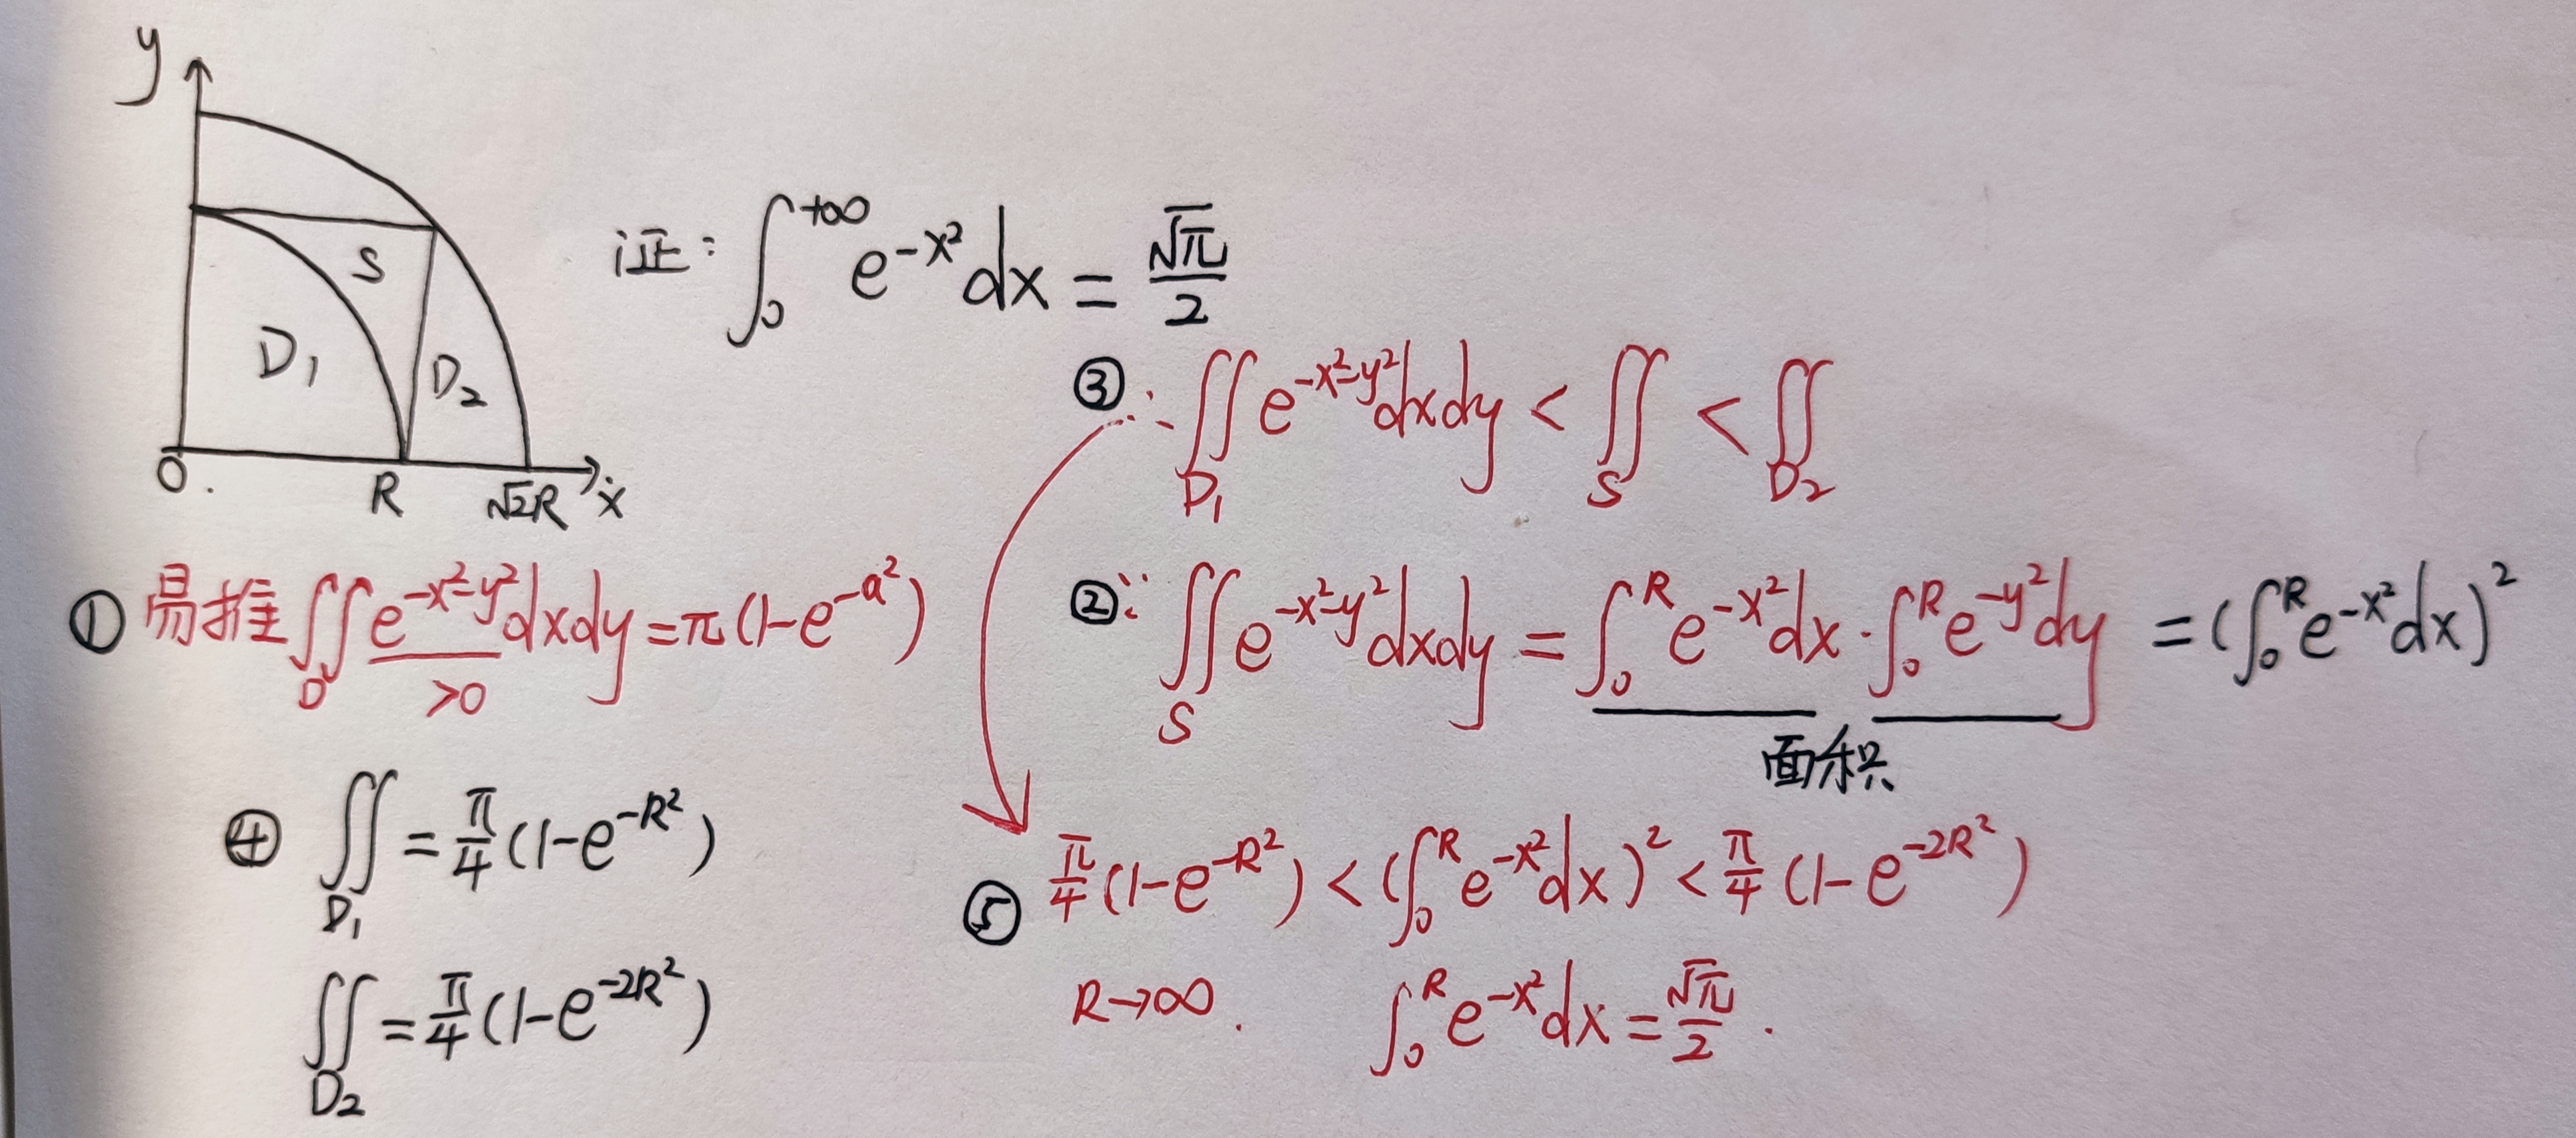 y
S
D₁
D₂
0
R
√2R
x
证: ∫₀^{+∞} e^{-x²} dx = √π/2
③ ∴ ∬_{D₁} e^{-x²-y²} dxdy < ∬_S < ∬_{D₂}
① 易推 ∬_D e^{-x²-y²} dxdy = π(1-e^{-a²})
>0
②∵ ∬_S e^{-x²-y²} dxdy = ∫₀^R e^{-x²} dx · ∫₀^R e^{-y²} dy = (∫₀^R e^{-x²} dx)²
面积
④ ∬_{D₁} = π/4 (1-e^{-R²})
∬_{D₂} = π/4 (1-e^{-2R²})
⑤ π/4 (1-e^{-R²}) < (∫₀^R e^{-x²} dx)² < π/4 (1-e^{-2R²})
R→∞. ∫₀^R e^{-x²} dx = √π/2 .